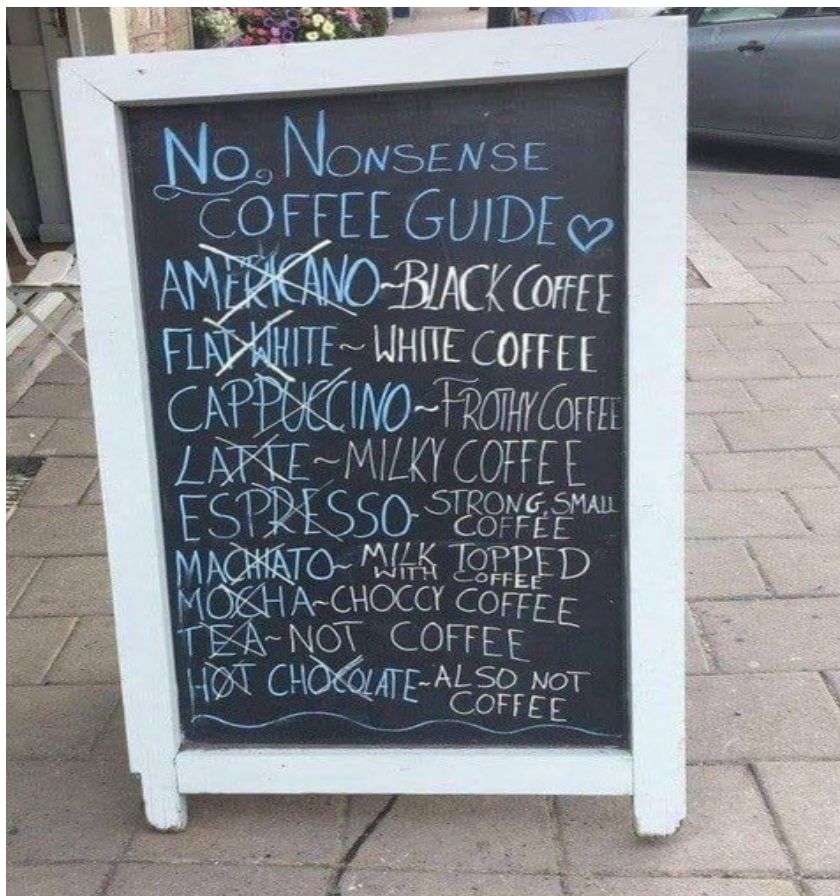 No Nonsense
COFFEE GUIDE
AMERICANO~BLACK COFFEE
FLAT WHITE~WHITE COFFEE
CAPPUCCINO~FROTHY COFFEE
LATTE~MILKY COFFEE
ESPRESSO~STRONG, SMALL
COFFEE
MACHIATO~MILK TOPPED
WITH COFFEE
MOCHA~CHOCCY COFFEE
TEA~NOT COFFEE
HOT CHOCOLATE~ALSO NOT
COFFEE